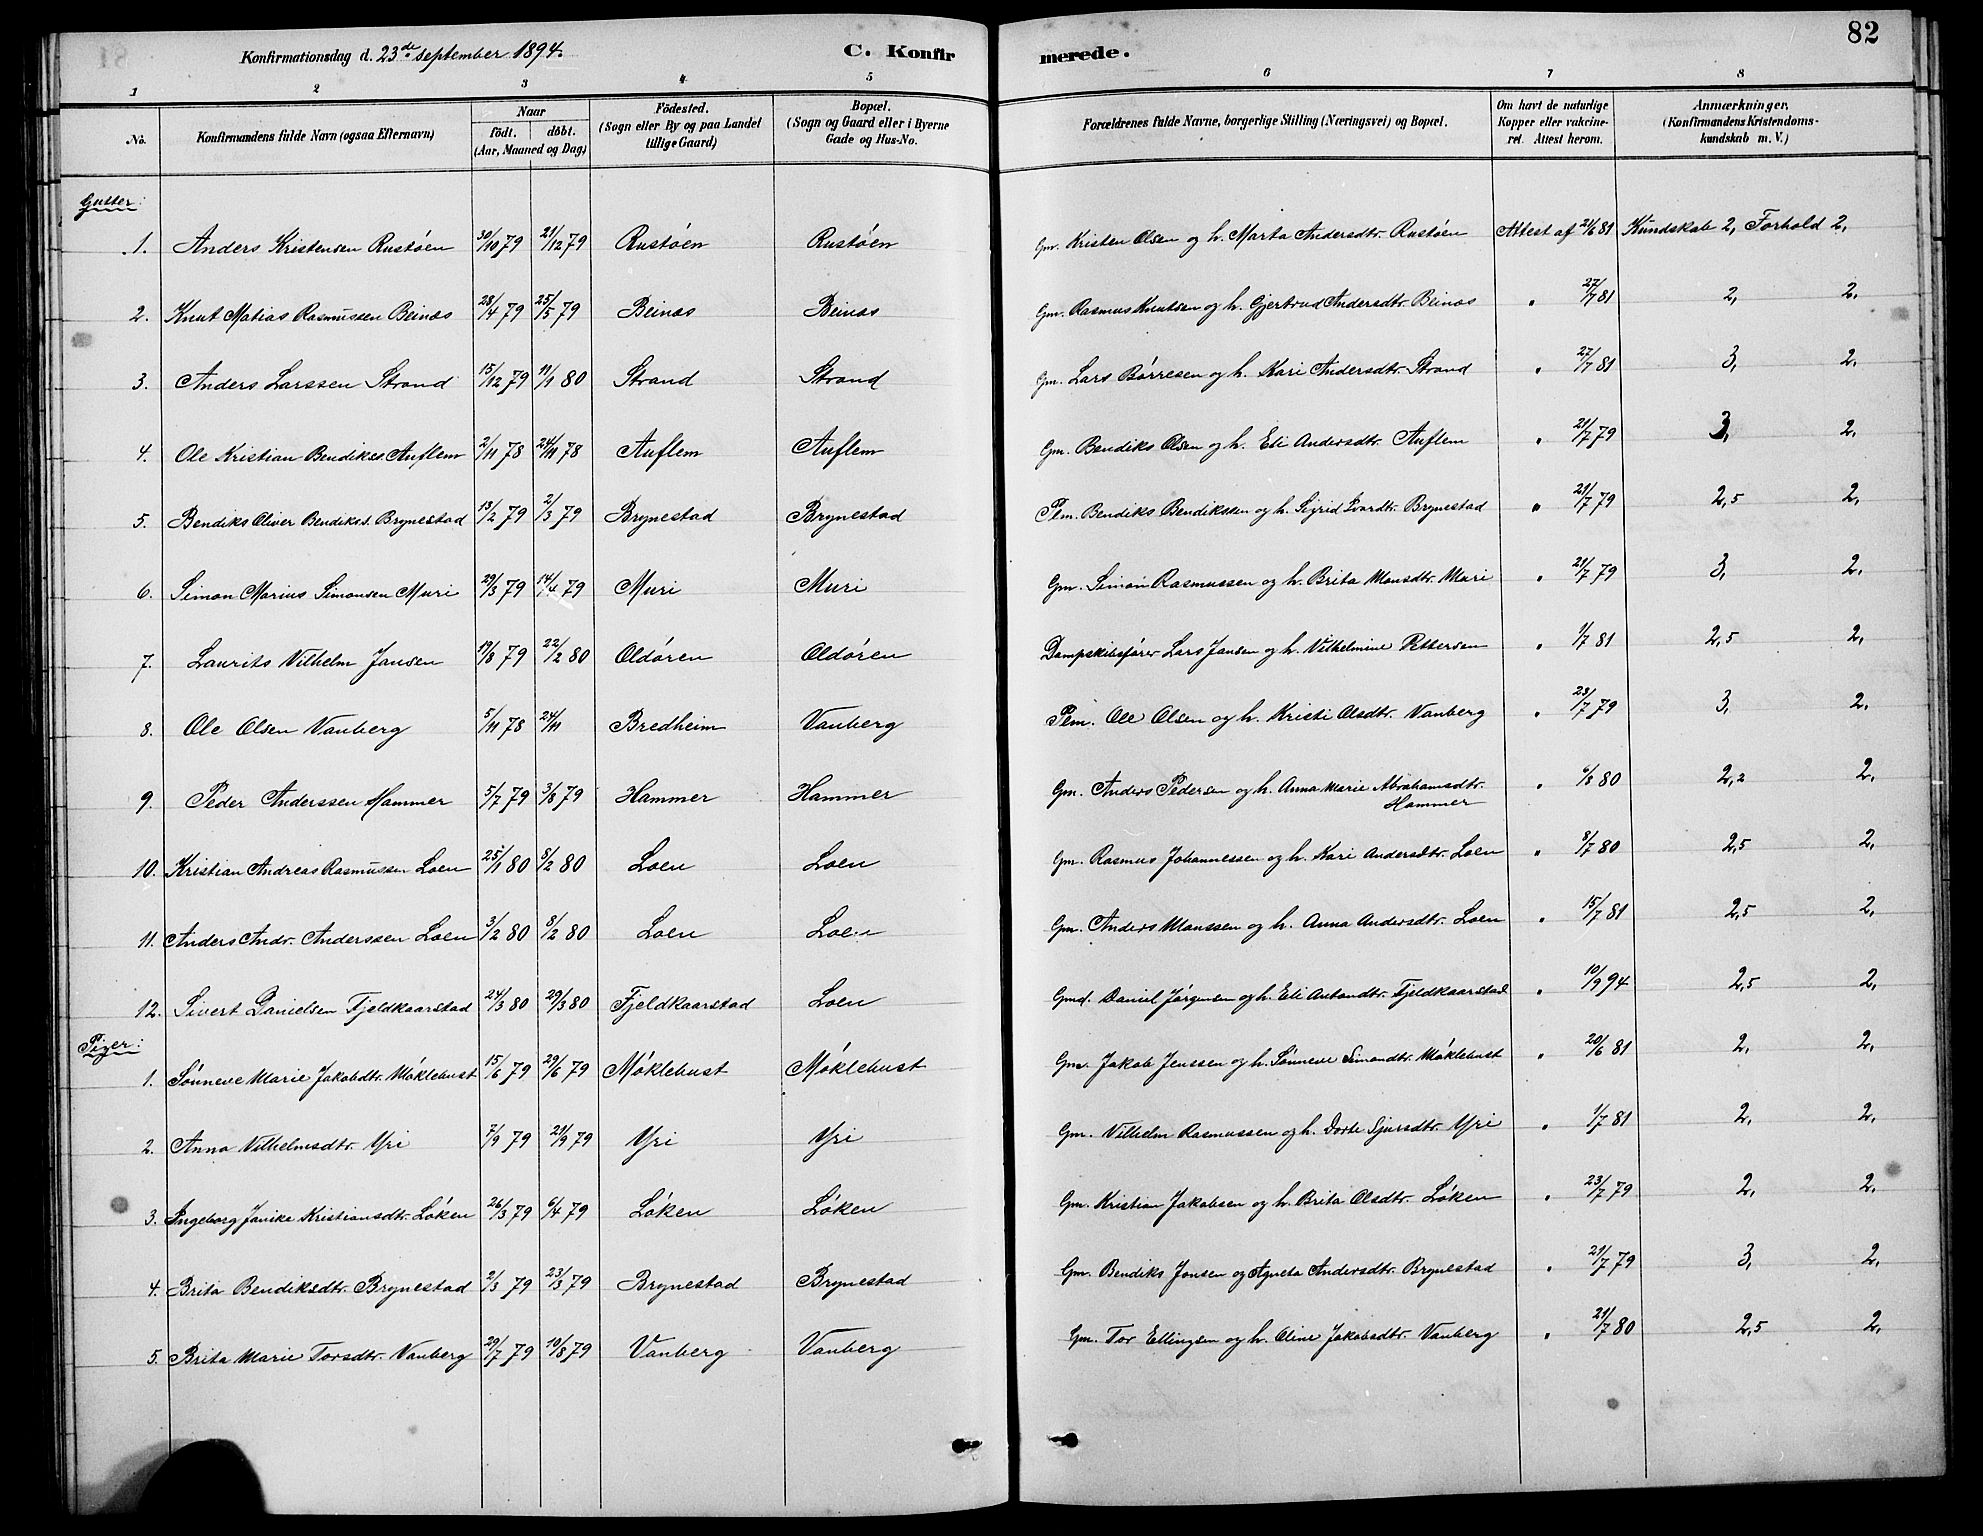 82
Konfirmationsdag d. 23de september 1894.
C. Konfirmerede.
1 2 3 4 5 6 7 8
No.
Konfirmandens fulde Navn (ogsaa Efternavn)
Naar
födt. döbt.
(Aar, Maaned og Dag)
Födested.
(Sogn eller By og paa Landet
tillige Gaard)
Bopæl.
(Sogn og Gaard eller i Byerne
Gade og Hus-No.
Forældrenes fulde Navne, borgerlige Stilling (Næringsvei) og Bopæl.
Om havt de naturlige
Kopper eller vakcine-
ret. Attest herom.
Anmærkninger.
(Konfirmandens Kristendoms-
kundskab m. V.)
Gutter:
1. Anders Kristensen Rustøen 30/10 79 21/12 79 Rustøen Rustøen Gm. Kristen Olsen og h. Marta Andersdtr. Rustøen Attest af 21/6 81 Kundskab 2, Forhold 2,
2. Knut Matias Rasmussen Beinæs 28/4 79 25/5 79 Beinæs Beinæs Gm. Rasmus Knutsen og h. Gjertrud Andersdtr. Beinæs " 27/7 81 2, 2,
3. Anders Larssen Strand 15/12 79 11/1 80 Strand Strand Gm. Lars Børresen og h. Kari Andersdtr. Strand " 27/7 81 3, 2,
4. Ole Kristian Bendikss. Auflem 2/11 78 24/11 78 Auflem Auflem Gm. Bendiks Olsen og h. Eli Andersdtr. Auflem " 21/7 79 3, 2,
5. Bendiks Oliver Bendikss. Brynestad 13/2 79 2/3 79 Brynestad Brynestad Pm. Bendiks Bendikssen og h. Sigrid Ivardtr. Brynestad " 21/7 79 2,5 2,
6. Simon Marius Simonsen Muri 29/3 79 14/4 79 Muri Muri Gm. Simon Rasmussen og h. Brita Monsdtr. Muri " 21/7 79 3, 2,
7. Laurits Vilhelm Jansen 19/8 79 22/2 80 Oldøren Oldøren Dampskibsfører Lars Jansen og h. Vilhelmine Pettersen " 1/7 81 2,5 2,
8. Ole Olsen Vanberg 5/11 78 24/11 Bredheim Vanberg Pm. Ole Olsen og h. Kristi Olsdtr. Vanberg " 23/7 79 3, 2,
9. Peder Anderssen Hammer 5/7 79 3/8 79 Hammer Hammer Gm. Anders Pedersen og h. Anna Marie Abrahamsdtr. " 6/8 80 2,2 2,
Hammer
10. Kristian Andreas Rasmussen Loen 25/1 80 8/2 80 Loen Loen Gm. Rasmus Johannessen og h. Kari Andersdtr. Loen " 8/7 80 2,5 2,
11. Anders Andr. Anderssen Loen 3/2 80 8/2 80 Loen Loen Gm. Anders Monssen og h. Anna Andersdtr. Loen " 15/7 81 2,5 2,
12. Sivert Danielsen Fjeldkaarstad 24/3 80 29/3 80 Fjeldkaarstad Loen Gmd. Daniel Jørgensen og h. Eli Antondtr. Fjeldkaarstad " 10/9 94 2,5 2,
Piger:
1. Sønneve Marie Jakobdtr. Møklebust 15/6 79 29/6 79 Møklebust Møklebust Gm. Jakob Jenssen og h. Sønneve Simondtr. Møklebust " 20/6 81 2, 2,
2. Anna Vilhelmsdtr. Yri 7/9 79 21/9 79 Yri Yri Gm. Vilhelm Rasmussen og h. Dorte Sjursdtr. Yri " 1/7 81 2, 2,
3. Ingeborg Janike Kristiansdtr. Løken 26/3 79 6/4 79 Løken Løken Gm. Kristian Jakobsen og h. Brita Olsdtr. Løken " 23/7 79 2, 2,
4. Brita Bendiksdtr. Brynestad 2/3 79 23/3 79 Brynestad Brynestad Gm. Bendiks Jonsen og Agneta Andersdtr. Brynestad " 21/7 79 3, 2,
5. Brita Marie Torsdtr. Vanberg 29/7 79 10/8 79 Vanberg Vanberg Gm. Tor Ellingsen og h. Oline Jakobsdtr. Vanberg " 21/7 80 2,5 2,